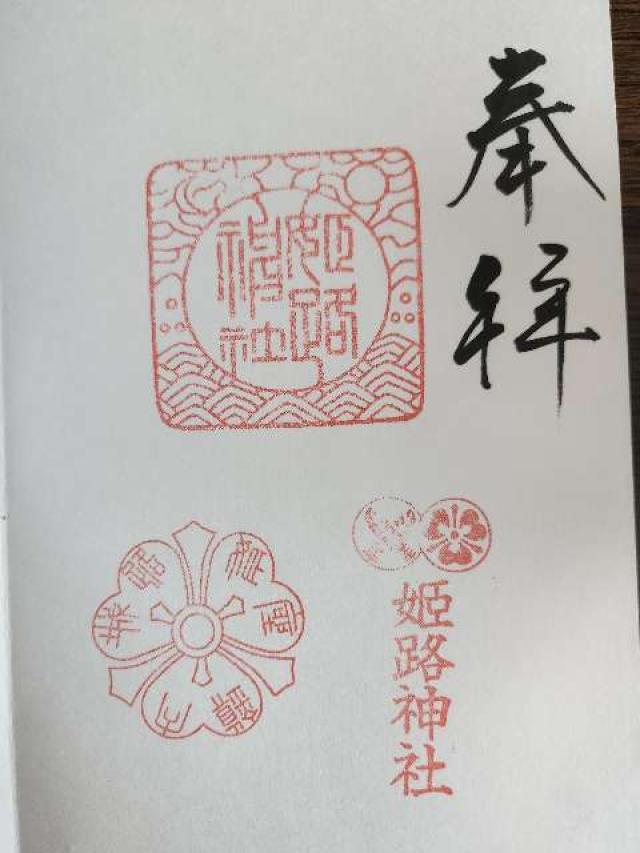 奉拝
姫路
神社
姫路神社